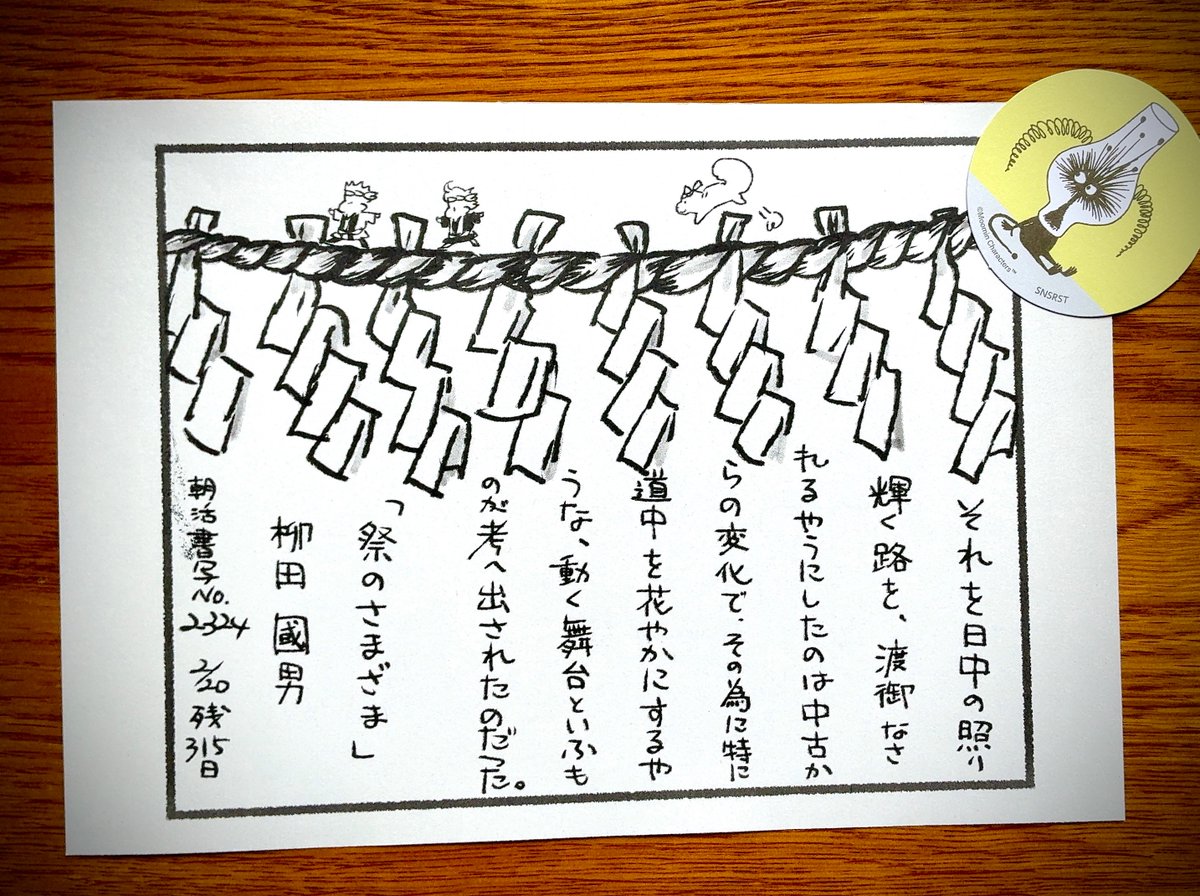 それを日中の照り
輝く路を、渡御なさ
れるやうにしたのは中古か
らの変化で、その為に特に
道中を花やかにするや
うな、動く舞台といふも
のが考へ出されたのだった。
「祭のさまざま」
柳田國男
朝活書写No.
2324
2/20 残
315日
©Moomin Characters™
SNSRST